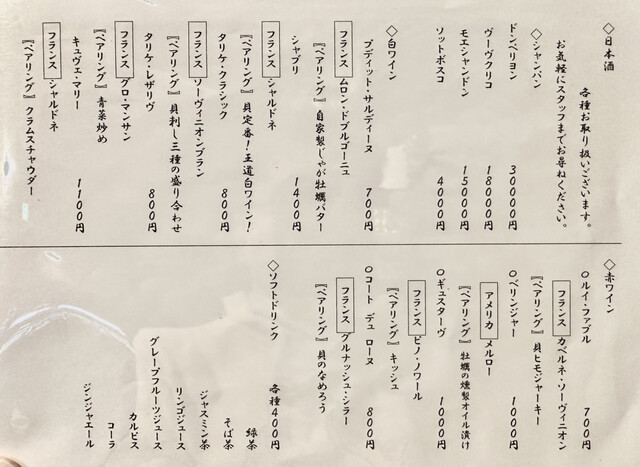 ◇日本酒
各種お取り扱いございます。
お気軽にスタッフまでお尋ねください。
◇シャンパン
ドンペリヨン 30000円
ヴーヴクリコ 18000円
モエシャンドン 15000円
ソットボスコ 4000円
◇白ワイン
プティット・サルディーヌ 700円
フランス ムロン・ドブルゴーニュ
『ペアリング』自家製じゃが牡蠣バター
シャブリ 1400円
フランス シャルドネ
『ペアリング』貝定番!王道白ワイン!
タリケ・クラシック 800円
フランス ソーヴィニオンブラン
『ペアリング』貝刺し三種の盛り合わせ
タリケ・レザリヴ 800円
フランス グロ・マンサン
『ペアリング』青菜炒め
キュヴェ・マリー 1100円
フランス シャルドネ
『ペアリング』クラムスチャウダー
◇赤ワイン
○ルイ・ファブル 700円
フランス カベルネ・ソーヴィニオン
『ペアリング』貝ヒモジャーキー
○ベリンジャー 1000円
アメリカ メルロー
『ペアリング』牡蠣の燻製オイル漬け
○ギュスターヴ 1000円
フランス ピノ・ノワール
『ペアリング』キッシュ
○コート デュ ローヌ 800円
フランス グルナッシュ・シラー
『ペアリング』貝のなめろう
◇ソフトドリンク 各種400円
緑茶
そば茶
ジャスミン茶
リンゴジュース
グレープフルーツジュース
カルピス
コーラ
ジンジャエール